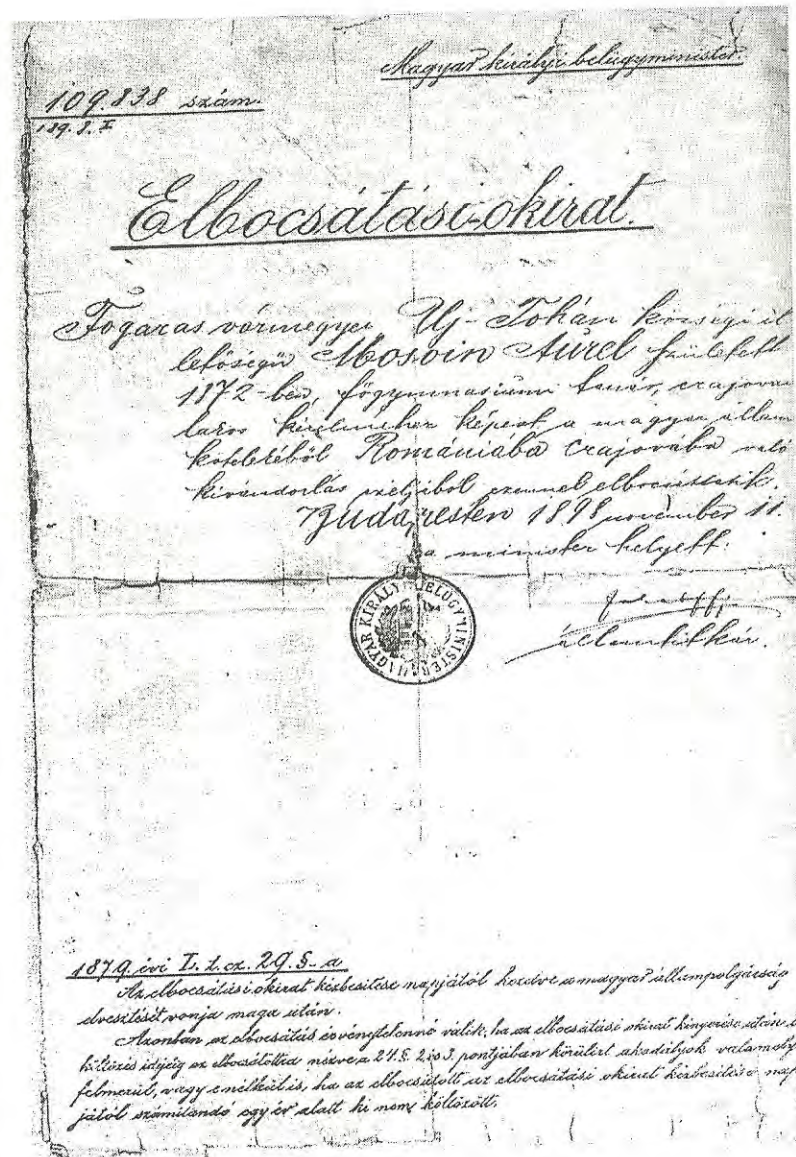 Magyar királyi belügyminister.
109.838 szám.
189. I
Elbocsátási-okirat.
Fogaras vármegye Uj-Tohán községi il
letőségü Mosoin Aurel született
1872-ben, főgymnasiumi tanár, crajovai
lakos kérelméhez képest a magyar állam
kötelékéből Romániába Crajovába való
kivándorlás czéljából ezennel elbocsáttatik.
Budapesten 1898 november 11.
a minister helyett:
államtitkár.
MAGYAR KIRÁLYI BELÜGYMINISTER
1879. évi L. t. cz. 29. §-a
Az elbocsátási okirat kézbesitése napjától kezdve a magyar állampolgárság
elvesztését vonja maga után.
Azonban az elbocsátás érvénytelenné válik, ha az elbocsátási okirat kinyerése után a
költözés idejéig az elbocsátottra nézve a 27. §. 2 és 3. pontjában körülirt akadályok valamely
felmerül, vagy e nélkül is, ha az elbocsátott az elbocsátási okirat kézbesitése nap
jától számitandó egy év alatt ki nem költözött.